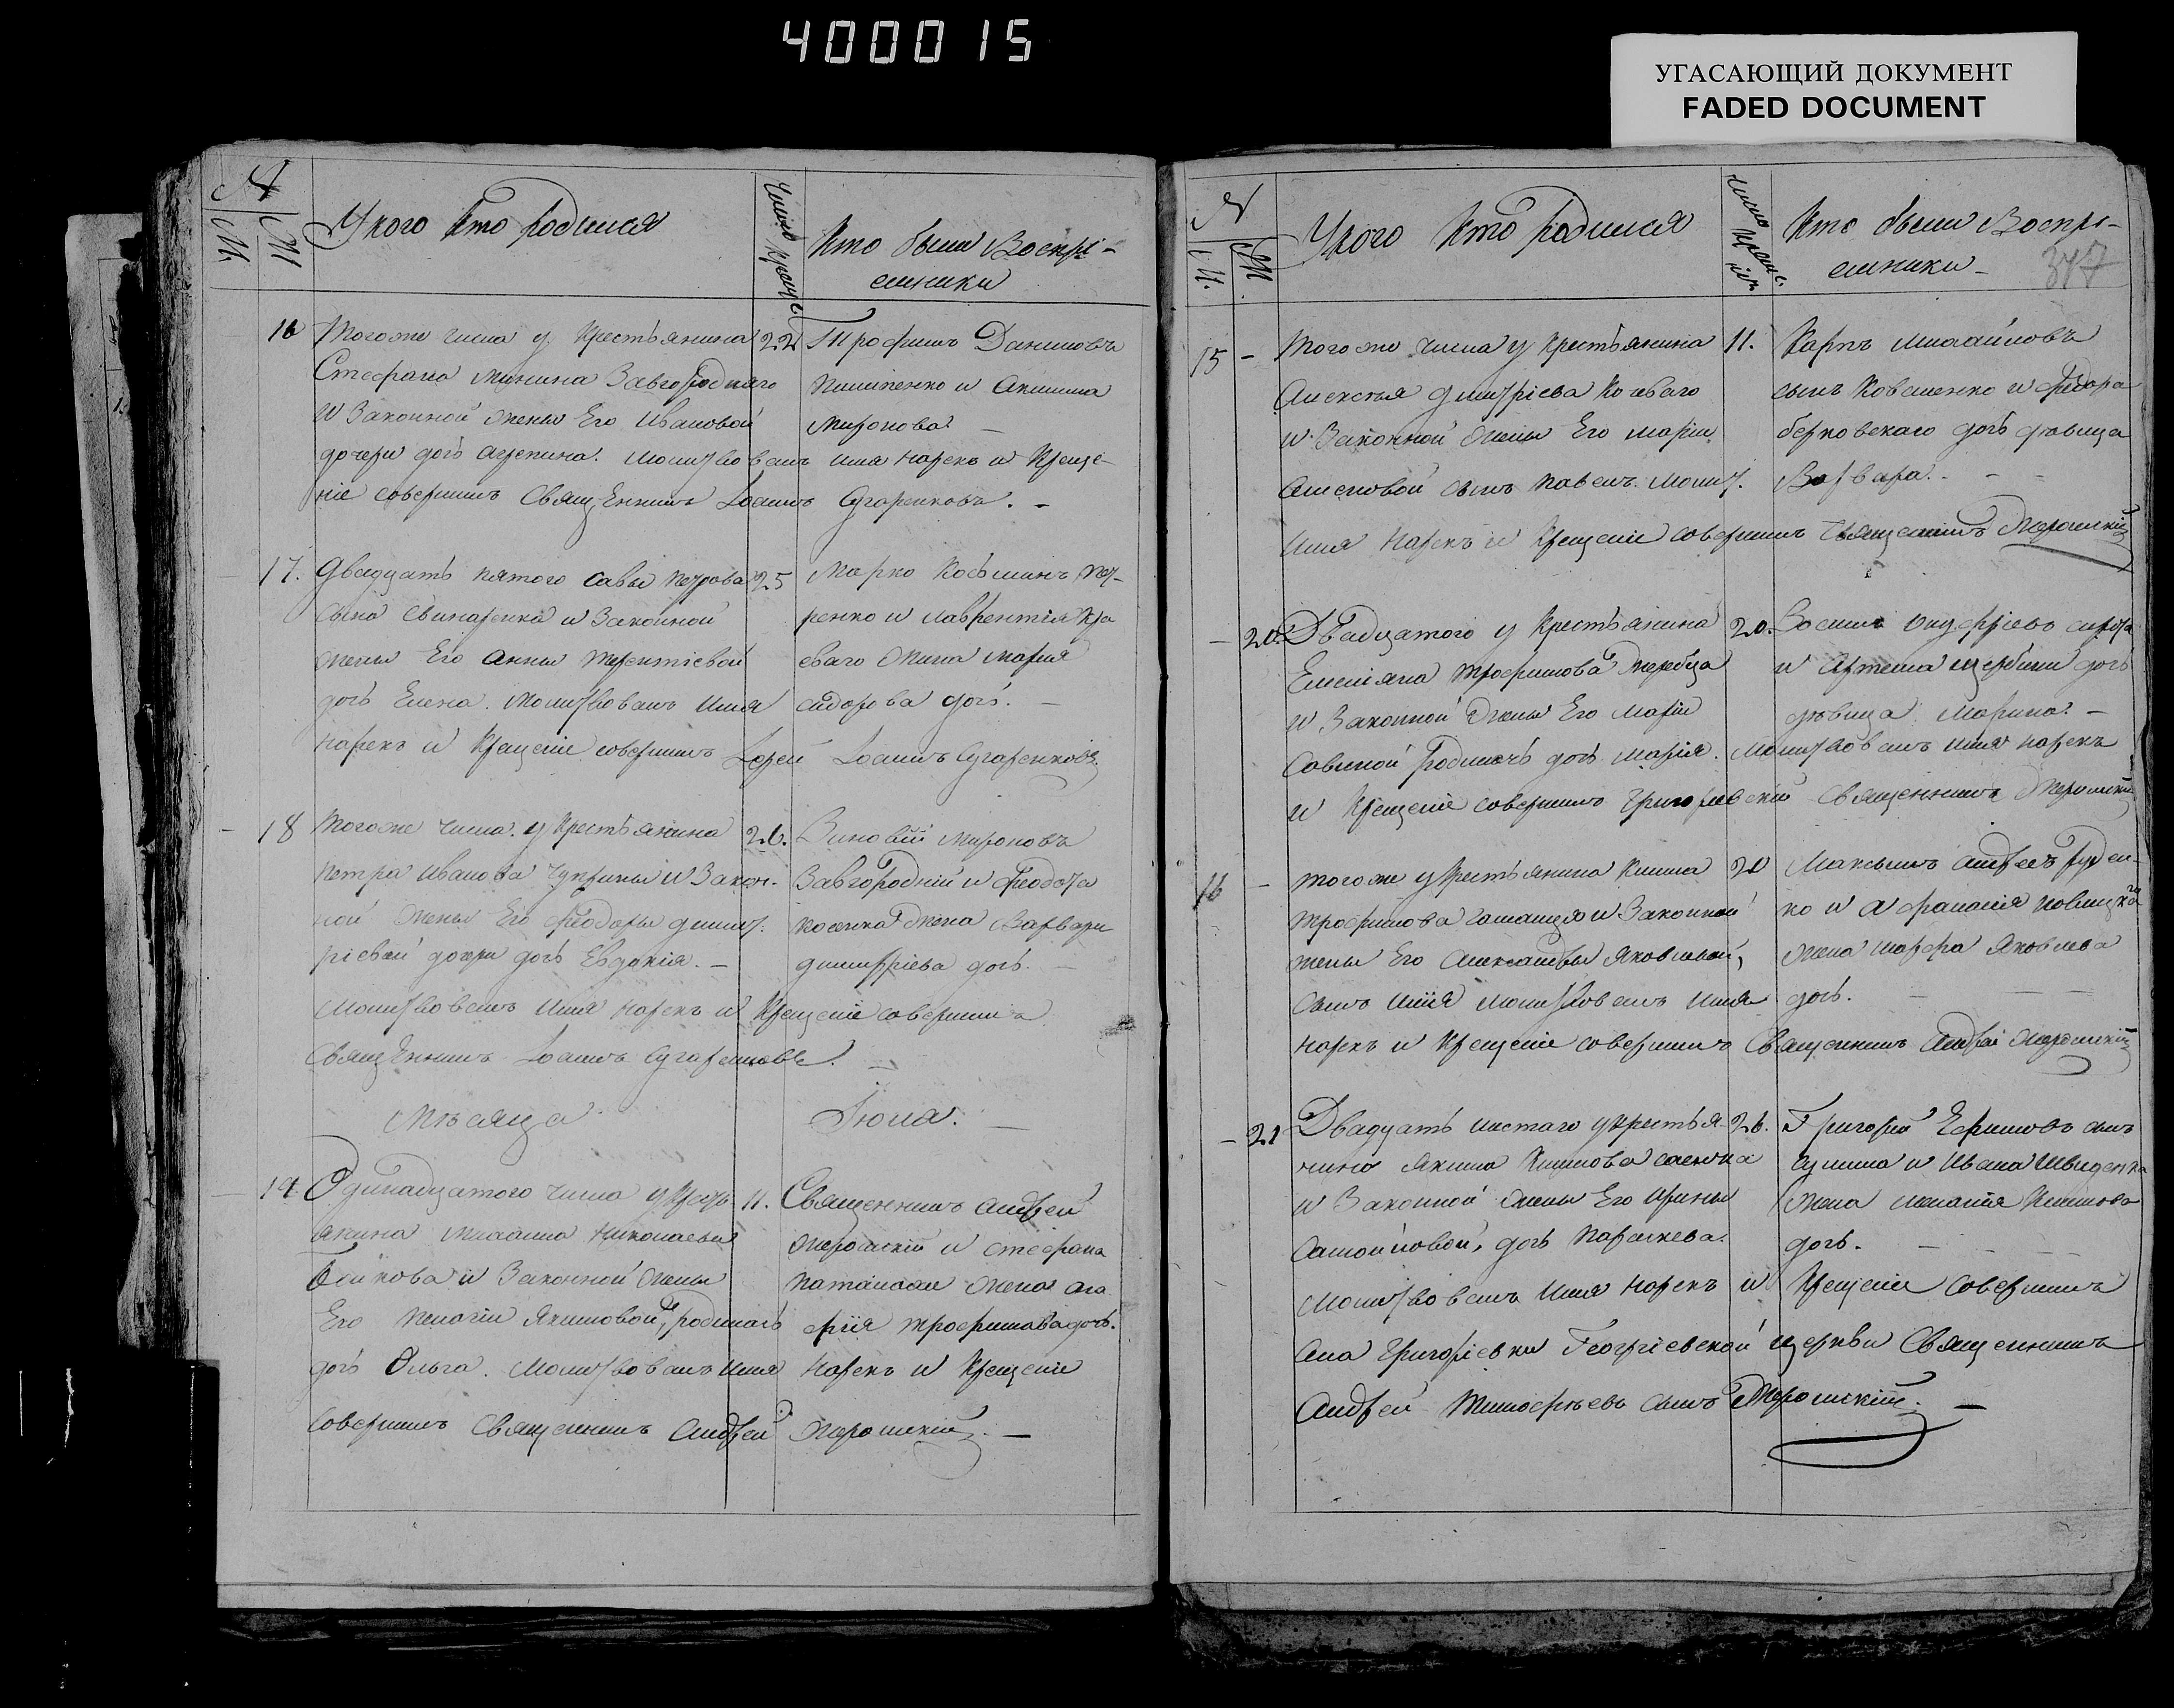 400015
УГАСАЮЩИЙ ДОКУМЕНТ
FADED DOCUMENT
№
М.
Ж
У кого кто родился
Число крещe
Кто были Воспрі-
емники
16
Тогоже числа у Крестьянина
Стефана Минина Завгороднего
и Законной жены Его Ивановой
дочери дочь Агрепина. Молитвовалъ имя нарекъ и Креще-
ніе совершилъ Священникъ Іоаннъ Сугаренковъ. -
22
Трофимъ Даниловъ
Пилипенко и Акилина
Миронова -
17.
Двадцать пятого Савы Петрова
сына Свинаренка и Законной
жены Его Анны Терентіевой
дочь Елена. Молитвовалъ имя
нарекъ и Крещеніе совершилъ Іерей Іоаннъ Сугаренковъ.
25
Марко Косьминъ Пет-
ренко и Лаврентія Кра
еваго жена Марія
Сидорова дочь. -
18
Тогоже числа у Крестьянина
Петра Иванова Чуприны и Закон-
ной жены Его Феодоры Димит-
ріевой дочери дочь Евдокія. -
Молитвовалъ имя нарекъ и Крещеніе совершилъ
Священникъ Іоаннъ Сугаренковъ. -
26.
Зиновій Мироновъ
Завгородній и Феодота
Косенка жена Варвара
Димитріева дочь. -
Мѣсяца Іюня. -
19
Одинадцатого числа у Кресть-
янина Михаила Николаева
Бойкова и Законной жены
Его Пелагіи Якимовой, родилась
дочь Ольга. Молитвовалъ имя нарекъ и Крещеніе
совершилъ Священникъ Андрей Жерошскій. -
11.
Священникъ Андрей
Жерошскій и Стефана
жена Ага
фія Трофимова дочь.
№
М.
Ж.
У кого кто родился
число креще-
нія
Кто были Воспрі-
емники -
347
15 -
Тогоже числа у Крестьянина
Алексея Димитріева Кочеваго
и Законной жены Его Маріи
сынъ Павелъ. Молит.
имя нарекъ и Крещеніе совершилъ Священникъ Жерошскій
11.
Карпъ Михайловъ
сынъ Коваленко и Федора
Берковскаго дочь девица
Варвара. - -
- 20.
Двадцатого у Крестьянина
Емеліяна Трофимова Жеребца
и Законной жены Его Маріи
Савиной родилась дочь Марія. Молитвовалъ имя нарекъ
и Крещеніе совершилъ Григорьевскій Священникъ Жерошскій
20.
и Артема Щербины дочь
дѣвица Марина. -
16 -
тогоже у Крестьянина Климa
Трофимова и Законной
жены Его Александры Яковлевой,
сынъ Илія Молитвовалъ имя
нарекъ и Крещеніе совершилъ Священникъ Андрей Жерошскій
20
Максимъ Андреевъ Руден-
ко и Афанасія Новицка
жена Марфа Яковлева
дочь. - - -
- 21
Двадцать шестаго у Крестья-
нина Якима Климова
и Законной жены Его Ирины
Самойловой, дочь Параскева.
Молитвовалъ имя нарекъ и Крещеніе совершилъ
Села Григоріевки Георгіевской церкви Священникъ
Андрей Тимофѣевъ сынъ Жерошскій. -
26.
Григорій Ефимовъ сынъ
Сулима и Ивана Швиденка
жена Меланія Климова
дочь. - - -